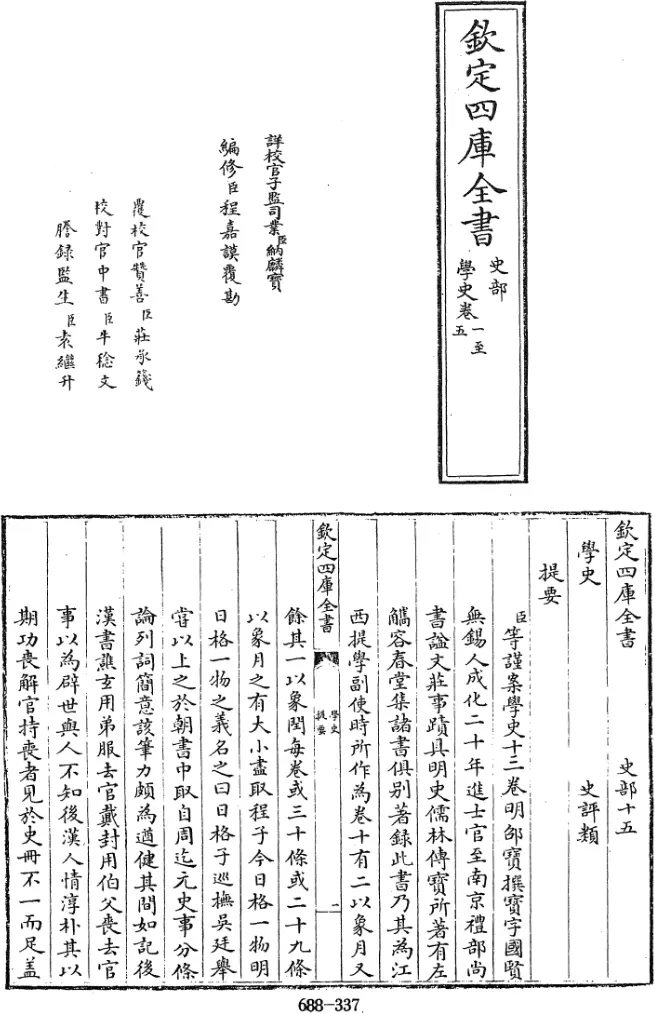 欽定四庫全書
史部
學史卷一至
五
詳校官子監司業臣納麟寶
編修臣程嘉謨覆勘
覆校官贊善臣莊承籛
校對官中書臣牛稔文
謄錄監生臣袁繼升
欽定四庫全書 史部十五
學史 史評類
提要
臣等謹案學史十三卷明邵寶撰寶字國賢
無錫人成化二十年進士官至南京禮部尚
書諡文莊事蹟具明史儒林傳寶所著有左
觿容春堂集諸書俱別著錄此書乃其為江
西提學副使時所作為卷十有二以象月又
欽定四庫全書
學史
提要
一
餘其一以象閏每卷或三十條或二十九條
以象月之有大小盡取程子今日格一物明
日格一物之義名之曰日格子巡撫吳廷舉
嘗以上之於朝書中取自周迄元史事分條
論列詞簡意該筆力頗為遒健其間如記後
漢書譙玄用弟服去官戴封用伯父喪去官
事以為辟世與人不知後漢人情淳朴其以
期功喪解官持喪者見於史冊不一而足蓋
688-337